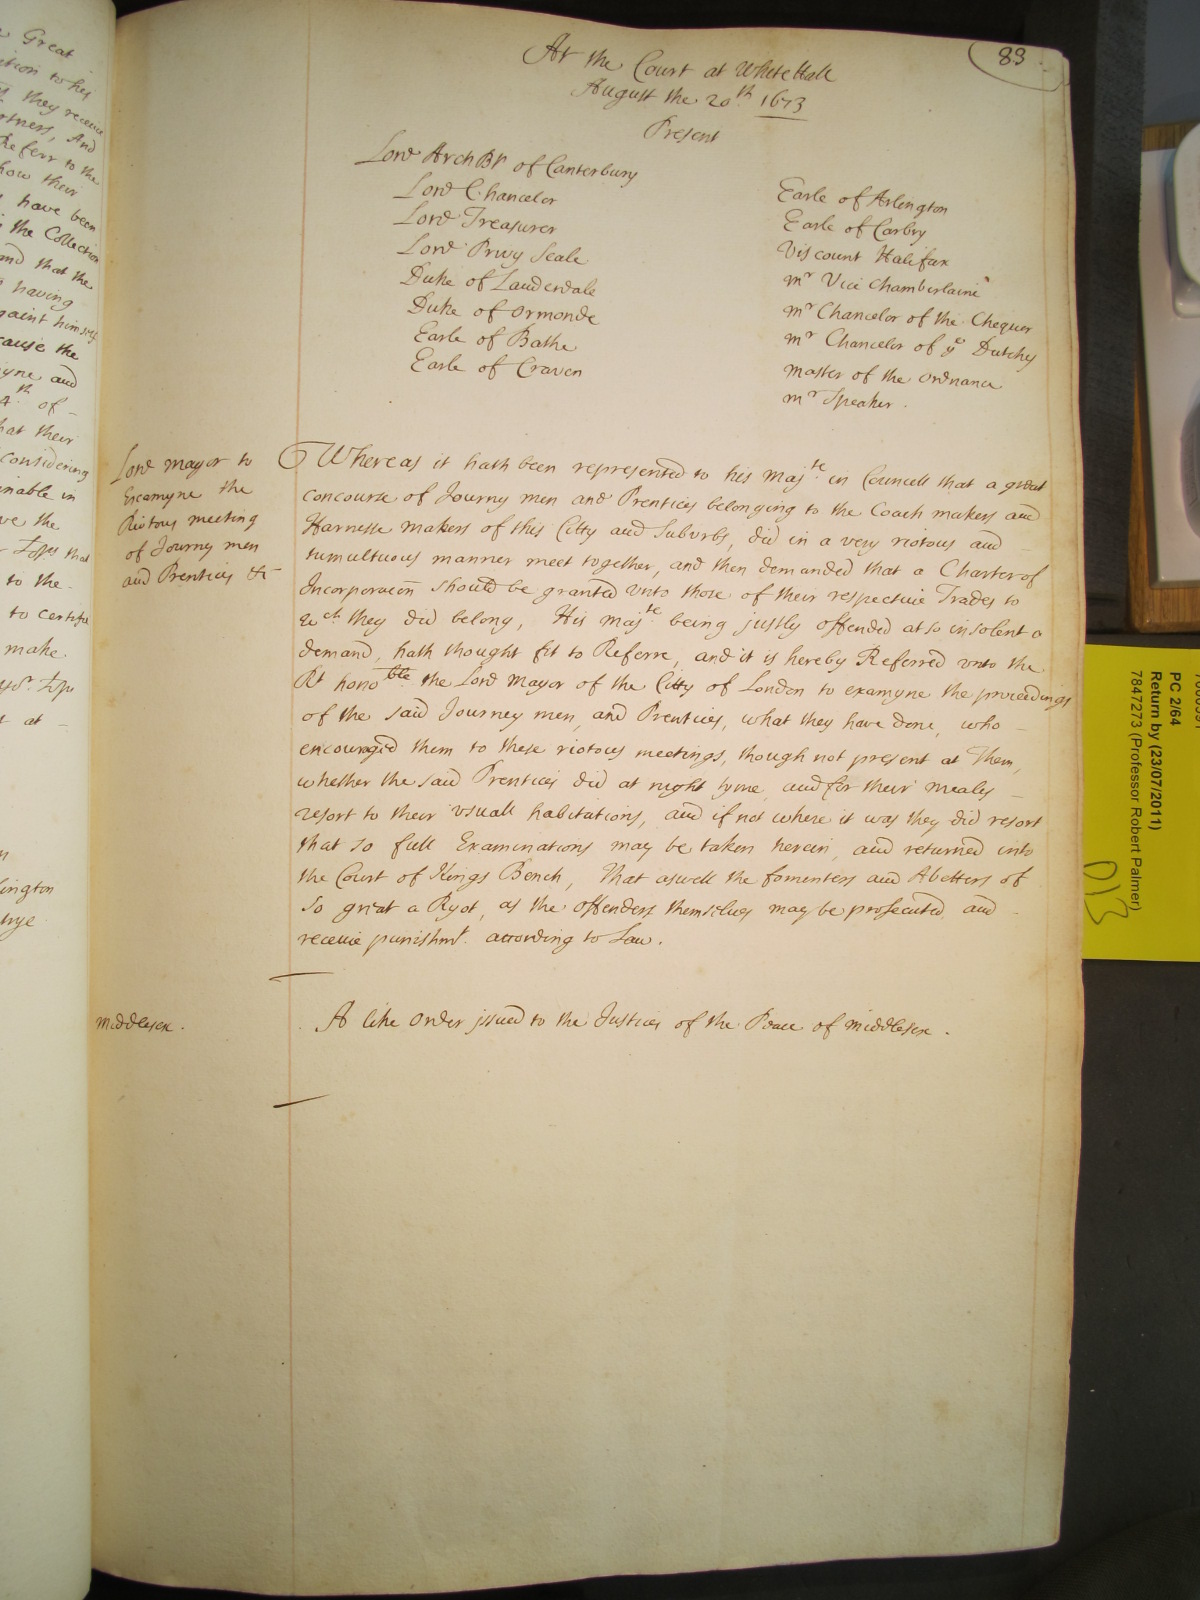 83
At the Court at White Hall
August the 20th. 1673
Present
Lord Arch Bp of Canterbury
Lord Chancelor
Lord Treasurer
Lord Privy Seale
Duke of Lauderdale
Duke of Ormonde
Earle of Bathe
Earle of Craven
Earle of Arlington
Earle of Carbry
Viscount Halifax
mr Vice Chamberlaine
mr Chancelor of the Chequer
mr Chancelor of ye Dutchy
master of the Ordnance
mr Speaker.
Lord Mayor to
Examyne the
Riotous meeting
of Journy men
and Prentices &c
Whereas it hath been represented to his Majte. in Councell that a great
concourse of Journy men and Prentices belonging to the Coach makers and
Harnesse makers of this Citty and Suburbs, did in a very riotous and
tumultuous manner meet together, and then demanded that a Charter of
Incorporacon should be granted vnto those of their respective Trades to
wch. they did belong, His Majte being justly offended at so insolent a
demand, hath thought fit to Referre, and it is hereby Referred vnto the
Rt honoble the Lord Mayor of the Citty of London to examyne the proceedings
of the said Journey men, and Prentices, what they have done, who –
encouraged them to these riotous meetings, though not present at Them,
whether the said Prentices did at night tyme, and for their meales –
resort to their vsuall habitations, and if not where it was they did resort
that so full Examinations may be taken herein, and returned into
the Court of Kings Bench, That aswell the fomenters and Abetters of
so great a Ryot, as the offenders themselves may be prosecuted, and –
receive punishmt. according to Law.
Middlesex.
A like Order issued to the Justices of the Peace of Middlesex.
Great
ation to his
they receive
And
Referr to the
how their
have been
the Collection
and that the
having
against himself
cause the
and
4th. of –
that their
considering
in
the
that
to the
to certifie
make
at –
PC 2/64
Return by (23/07/2011)
7847273 (Professor Robert Palmer)
013